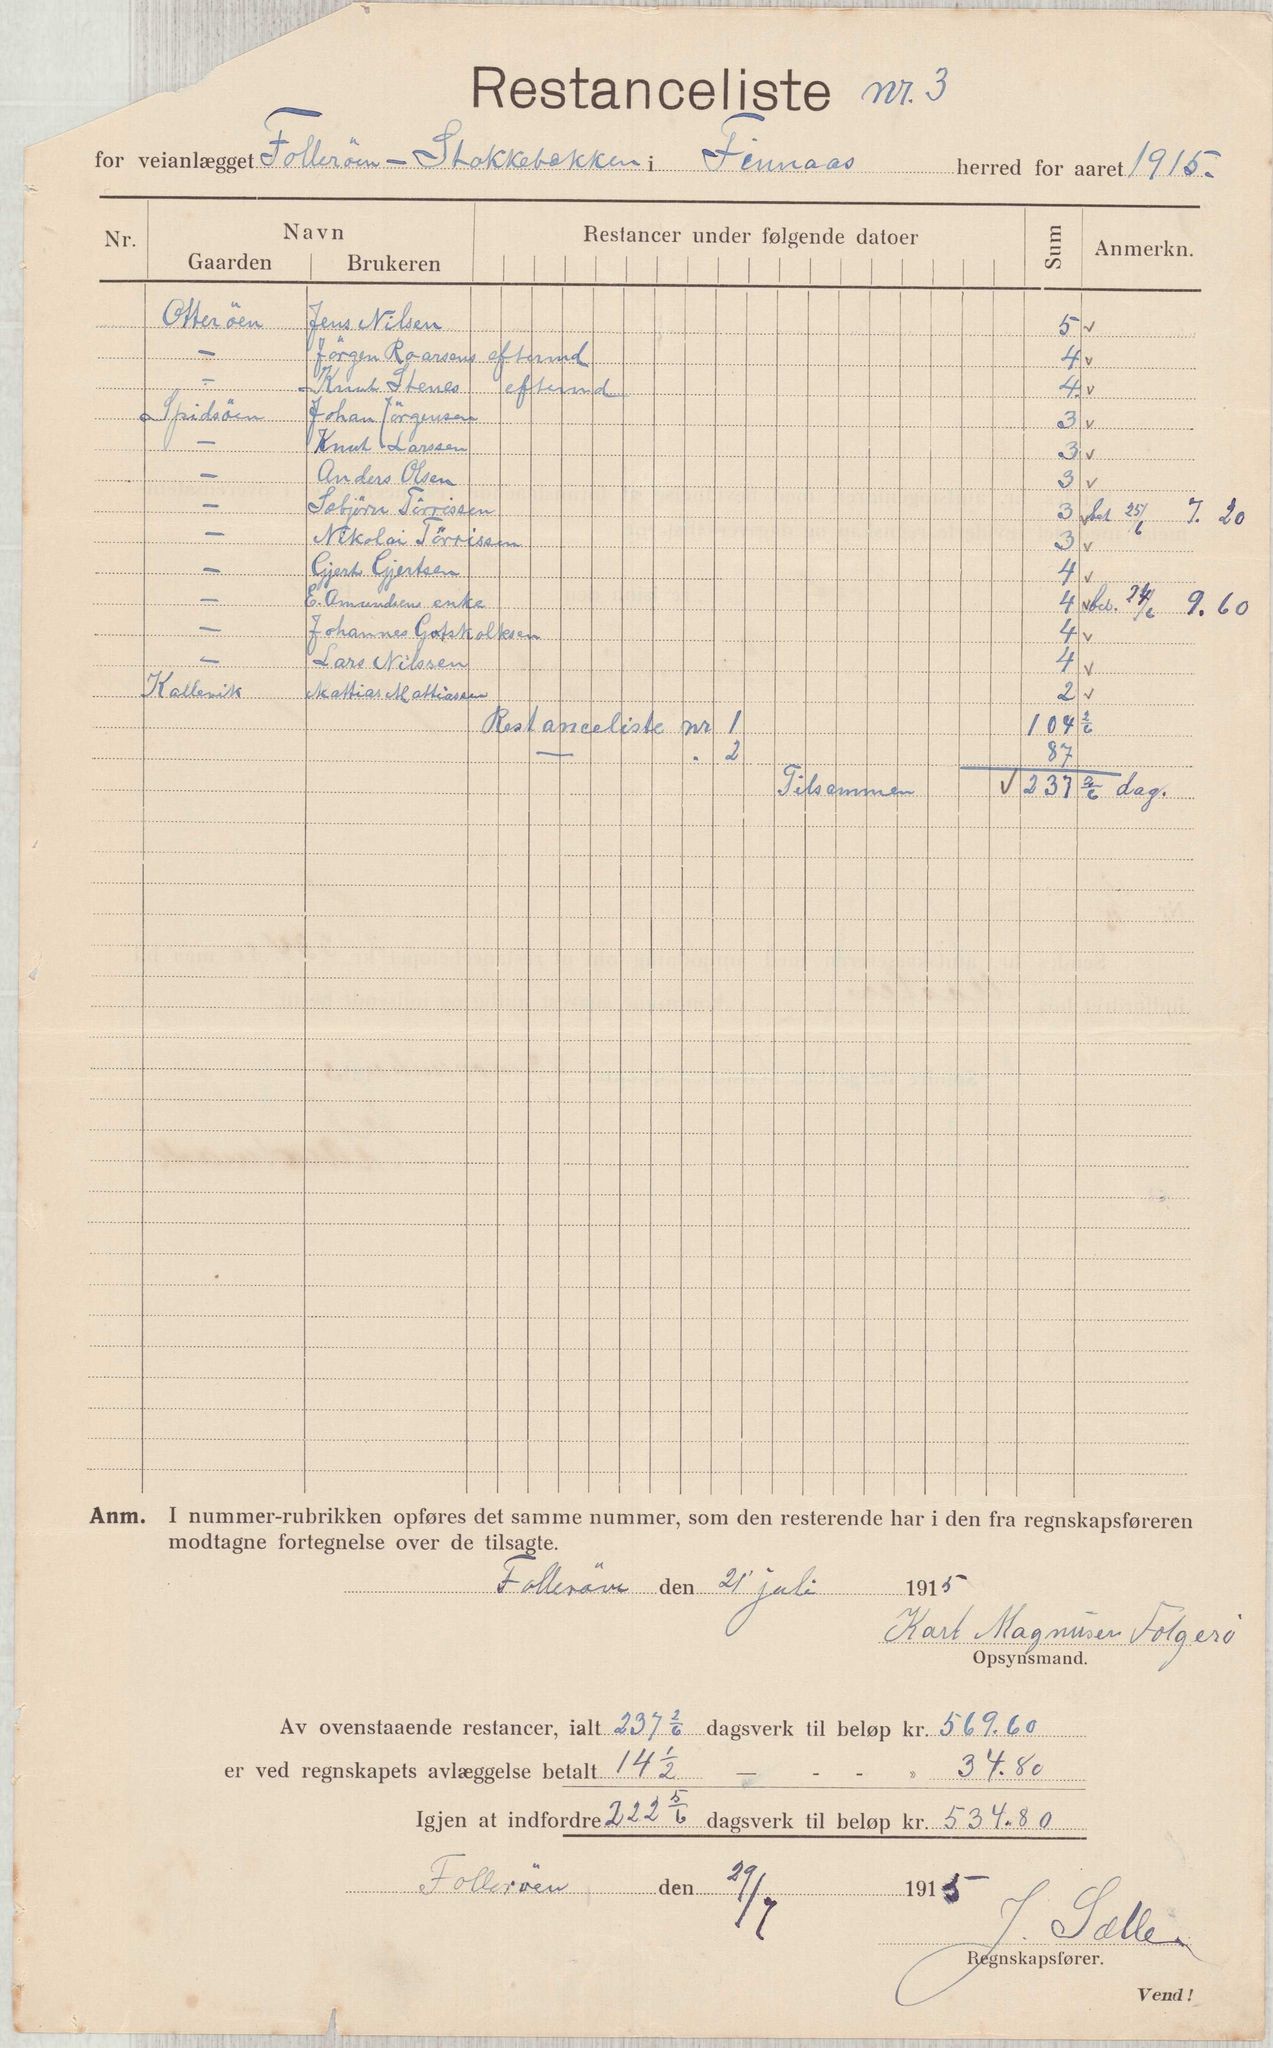 Restanceliste nr. 3
for veianlægget Folleröen – Stokkebækken i Finnaas herred for aaret 1915.
Nr. Navn Restancer under følgende datoer Sum Anmerkn.
Gaarden Brukeren
Otteröen Jens Nilsen 5 v
— Jörgen Roarsens eftermd 4 v
— Knut Stenes eftermd 4 v
Spidsöen Johan Jörgensen 3 v
— Knut Larssen 3 v
— Anders Olsen 3 v
— Sebjörn Törrissen 3 v bet 25/6 7.20
— Nikolai Törrissen 3 v
— Gjert Gjertsen 4 v
— E. Amundsens enke 4 v bet. 24/6 9.60
— Johannes Gotskalksen 4 v
— Lars Nilssen 4 v
Kallevik Mattias Mattiassen 2 v
Restanceliste nr 1 104 2/6
— . 2 87
Tilsammen v 237 2/6 dag.
Anm. I nummer-rubrikken opføres det samme nummer, som den resterende har i den fra regnskapsføreren
modtagne fortegnelse over de tilsagte.
Folleröen den 21 juli 1915
Karl Magnusen Folgerö
Opsynsmand.
Av ovenstaaende restancer, ialt 237 2/6 dagsverk til beløp kr. 569.60
er ved regnskapets avlæggelse betalt 14 1/2 — - - » 34.80
Igjen at indfordre 222 5/6 dagsverk til beløp kr. 534.80
Folleröen den 29/7 1915
J. Sælle
Regnskapsfører.
Vend!